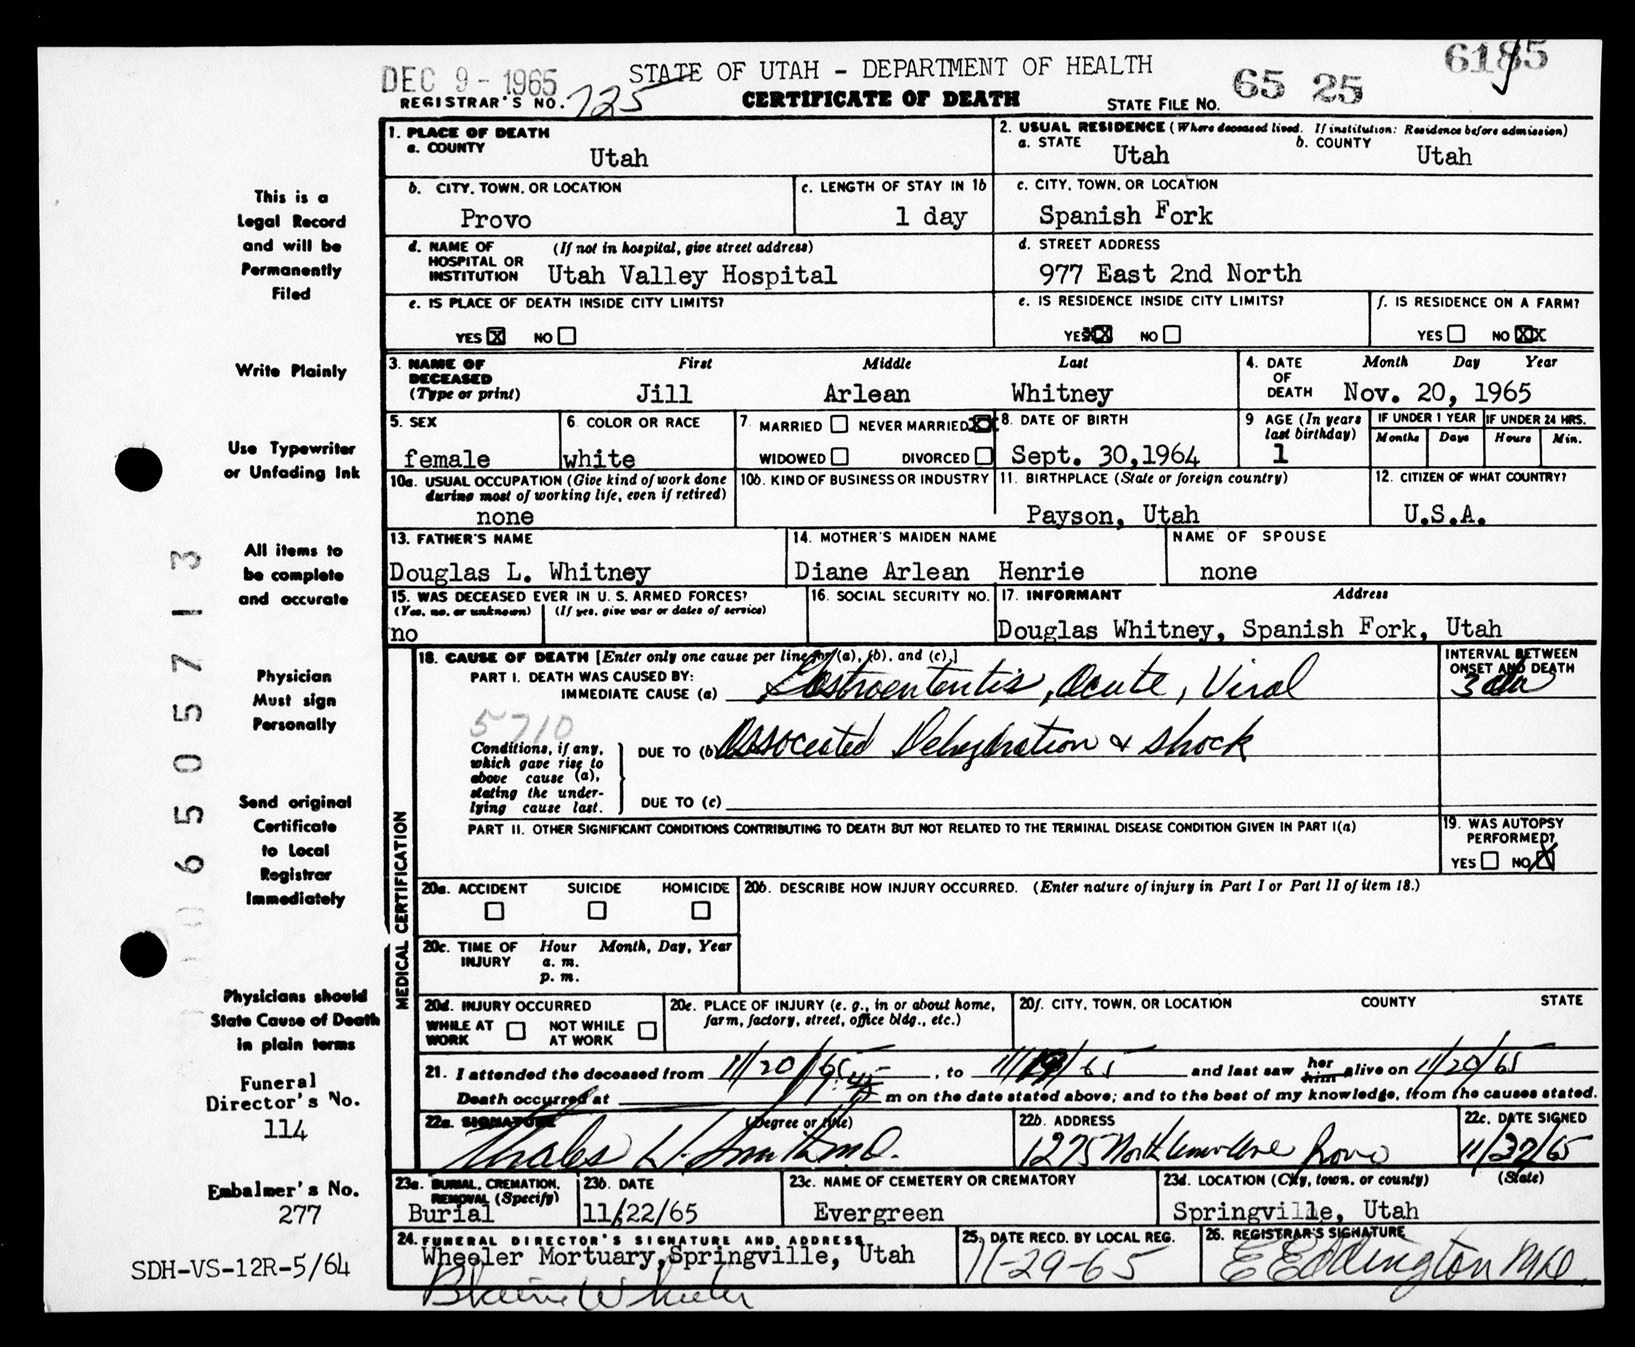 DEC 9 - 1965
STATE OF UTAH - DEPARTMENT OF HEALTH
65 25
6185
REGISTRAR'S NO. 725
CERTIFICATE OF DEATH
STATE FILE NO.
This is a
Legal Record
and will be
Permanently
Filed
Write Plainly
Use Typewriter
or Unfading Ink
All items to
be complete
and accurate
Physician
Must sign
Personally
Send original
Certificate
to Local
Registrar
Immediately
Physicians should
State Cause of Death
in plain terms
Funeral
Director's No.
114
Embalmer's No.
277
SDH-VS-12R-5/64
006505713
1. PLACE OF DEATH
a. COUNTY
Utah
2. USUAL RESIDENCE (Where deceased lived. If institution: Residence before admission)
a. STATE
Utah
b. COUNTY
Utah
b. CITY, TOWN, OR LOCATION
Provo
c. LENGTH OF STAY IN 1b
1 day
c. CITY, TOWN, OR LOCATION
Spanish Fork
d. NAME OF HOSPITAL OR INSTITUTION
(If not in hospital, give street address)
Utah Valley Hospital
d. STREET ADDRESS
977 East 2nd North
e. IS PLACE OF DEATH INSIDE CITY LIMITS?
YES X NO
e. IS RESIDENCE INSIDE CITY LIMITS?
YES XX NO
f. IS RESIDENCE ON A FARM?
YES NO XX
3. NAME OF DECEASED
(Type or print)
First Middle Last
Jill Arlean Whitney
4. DATE OF DEATH
Month Day Year
Nov. 20, 1965
5. SEX
female
6. COLOR OR RACE
white
7. MARRIED NEVER MARRIED X
WIDOWED DIVORCED
8. DATE OF BIRTH
Sept. 30,1964
9 AGE (In years last birthday)
1
IF UNDER 1 YEAR
Months Days
IF UNDER 24 HRS.
Hours Min.
10a. USUAL OCCUPATION (Give kind of work done during most of working life, even if retired)
none
10b. KIND OF BUSINESS OR INDUSTRY
11. BIRTHPLACE (State or foreign country)
Payson, Utah
12. CITIZEN OF WHAT COUNTRY?
U.S.A.
13. FATHER'S NAME
Douglas L. Whitney
14. MOTHER'S MAIDEN NAME
Diane Arlean Henrie
NAME OF SPOUSE
none
15. WAS DECEASED EVER IN U. S. ARMED FORCES?
(Yes, no, or unknown) (If yes, give war or dates of service)
no
16. SOCIAL SECURITY NO.
17. INFORMANT Address
Douglas Whitney, Spanish Fork, Utah
MEDICAL CERTIFICATION
18. CAUSE OF DEATH [Enter only one cause per line for (a), (b), and (c).]
PART I. DEATH WAS CAUSED BY:
IMMEDIATE CAUSE (a) Gastroententis, Acute, Viral
INTERVAL BETWEEN ONSET AND DEATH
3 da
5710
Conditions, if any, which gave rise to above cause (a), stating the underlying cause last.
DUE TO (b) Associated Dehydration & shock
DUE TO (c)
PART II. OTHER SIGNIFICANT CONDITIONS CONTRIBUTING TO DEATH BUT NOT RELATED TO THE TERMINAL DISEASE CONDITION GIVEN IN PART I(a)
19. WAS AUTOPSY PERFORMED?
YES NO X
20a. ACCIDENT SUICIDE HOMICIDE
20b. DESCRIBE HOW INJURY OCCURRED. (Enter nature of injury in Part I or Part II of item 18.)
20c. TIME OF INJURY
Hour Month, Day, Year
a. m.
p. m.
20d. INJURY OCCURRED
WHILE AT WORK NOT WHILE AT WORK
20e. PLACE OF INJURY (e. g., in or about home, farm, factory, street, office bldg., etc.)
20f. CITY, TOWN, OR LOCATION COUNTY STATE
21. I attended the deceased from 11/20/65, to 11/19/65 and last saw her him alive on 11/20/65
Death occurred at 1:45 m on the date stated above; and to the best of my knowledge, from the causes stated.
22a. SIGNATURE (Degree or title)
Thales H. Smith M.D.
22b. ADDRESS
1275 North Provo
22c. DATE SIGNED
11/27/65
23a. BURIAL, CREMATION, REMOVAL (Specify)
Burial
23b. DATE
11/22/65
23c. NAME OF CEMETERY OR CREMATORY
Evergreen
23d. LOCATION (City, town, or county) (State)
Springville, Utah
24. FUNERAL DIRECTOR'S SIGNATURE AND ADDRESS
Wheeler Mortuary, Springville, Utah
Blaine W Wheeler
25. DATE RECD. BY LOCAL REG.
11-29-65
26. REGISTRAR'S SIGNATURE
E Eddington MD